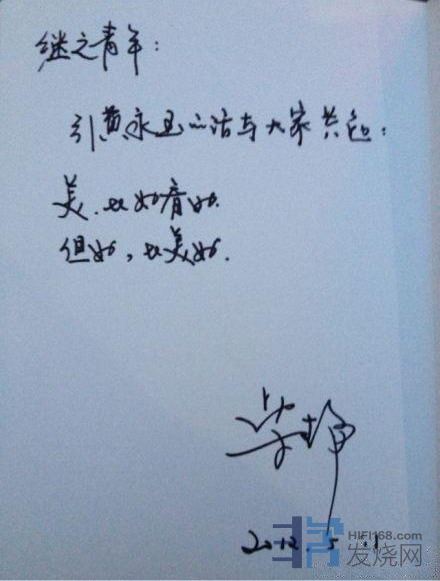 继之青年：
引黄永玉的话与大家共勉：
美，比好看好.
但好，比美好.
柴静
2012.5.
HIFI168.com
发烧网